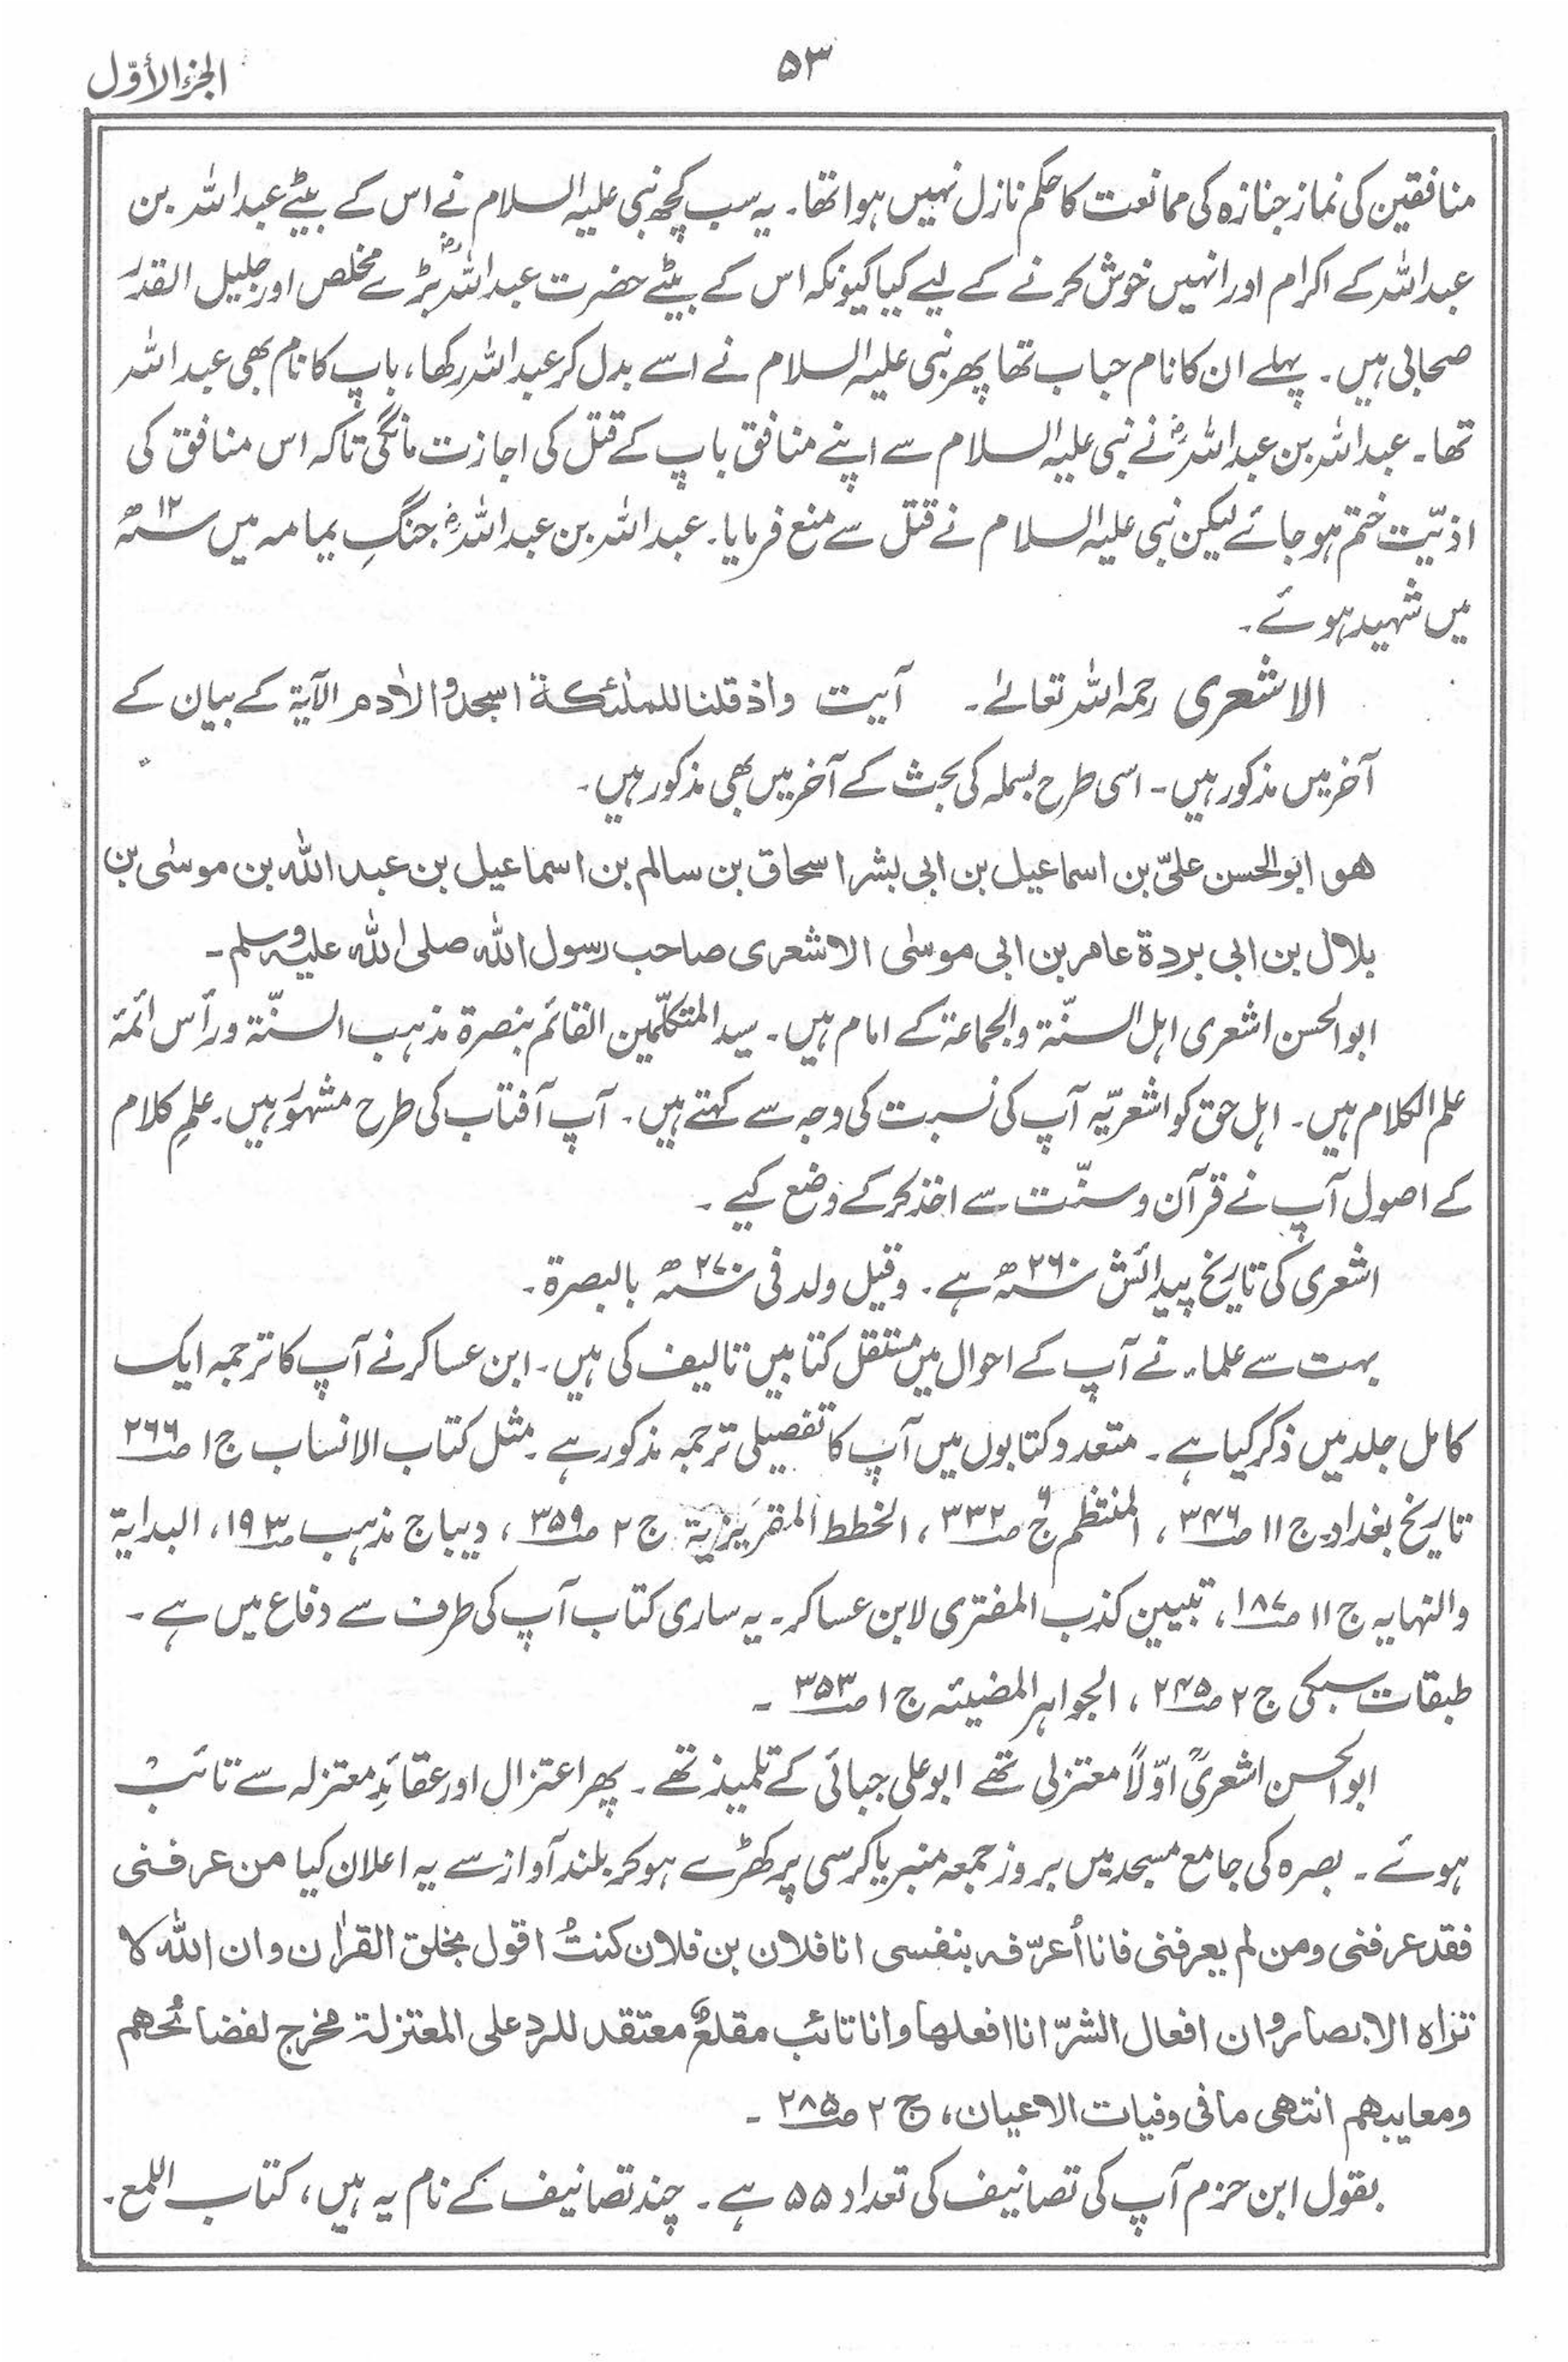 الجزء الأوّل
۵۳
منافقین کی نماز جنازہ کی ممانعت کا حکم نازل نہیں ہوا تھا۔ یہ سب کچھ نبی علیہ السلام نے اس کے بیٹے عبداللہ بن
عبداللہ کے اکرام اور انہیں خوش کرنے کے لیے کیا کیونکہ اس کے بیٹے حضرت عبداللہؓ بڑے مخلص اور جلیل القدر
صحابی ہیں۔ پہلے ان کا نام حباب تھا پھر نبی علیہ السلام نے اسے بدل کر عبداللہ رکھا، باپ کا نام بھی عبداللہ
تھا۔ عبداللہ بن عبداللہؓ نے نبی علیہ السلام سے اپنے منافق باپ کے قتل کی اجازت مانگی تاکہ اس منافق کی
اذیّت ختم ہو جائے لیکن نبی علیہ السلام نے قتل سے منع فرمایا۔ عبداللہ بن عبداللہؓ جنگِ یمامہ میں ۱۲ سنہ ھ
میں شہید ہوئے۔
الاشعری رحمہ اللہ تعالیٰ۔ آیت واذ قلنا للملٰئکة اسجدوا لاٰدم الآیة کے بیان کے
آخر میں مذکور ہیں۔ اسی طرح بسملہ کی بحث کے آخر میں بھی مذکور ہیں۔
هو ابو الحسن علیّ بن اسماعیل بن ابی بشر اسحاق بن سالم بن اسماعیل بن عبد اللّٰه بن موسٰی بن
بلال بن ابی بردة عامر بن ابی موسٰی الاشعری صاحب رسول اللّٰه صلی اللّٰه علیه وسلم۔
ابو الحسن اشعری اہل السنّة والجماعة کے امام ہیں۔ سید المتکلّمین القائم بنصرة مذہب السنّة ورأس ائمة
علم الکلام ہیں۔ اہل حق کو اشعریّہ آپ کی نسبت کی وجہ سے کہتے ہیں۔ آپ آفتاب کی طرح مشہور ہیں۔ علمِ کلام
کے اصول آپ نے قرآن و سنّت سے اخذ کر کے وضع کیے۔
اشعری کی تاریخ پیدائش ۲۶۰ سنہ ھ ہے۔ وقیل ولد فی ۲۷۰ سنہ ھ بالبصرة۔
بہت سے علماء نے آپ کے احوال میں مستقل کتابیں تالیف کی ہیں۔ ابن عساکر نے آپ کا ترجمہ ایک
کامل جلد میں ذکر کیا ہے۔ متعدد کتابوں میں آپ کا تفصیلی ترجمہ مذکور ہے۔ مثل کتاب الانساب ج ۱ صـ ۲۶۶
تاریخ بغداد ج ۱۱ صـ ۳۴۶، المنتظم ج ۶ صـ ۳۳۲، الخطط المقریزیة ج ۲ صـ ۳۵۹، دیباج مذہب صـ ۱۹۳، البدایة
والنہایہ ج ۱۱ صـ ۱۸۷، تبیین کذب المفتری لابن عساکر۔ یہ ساری کتاب آپ کی طرف سے دفاع میں ہے۔
طبقات سبکی ج ۲ صـ ۲۴۵، الجواہر المضیئہ ج ۱ صـ ۳۵۳۔
ابو الحسن اشعریؒ اوّلاً معتزلی تھے ابو علی جبائی کے تلمیذ تھے۔ پھر اعتزال اور عقائدِ معتزلہ سے تائب
ہوئے۔ بصرہ کی جامع مسجد میں بروز جمعہ منبر یا کرسی پر کھڑے ہو کر بلند آواز سے یہ اعلان کیا من عرفنی
فقد عرفنی ومن لم یعرفنی فانا اُعرّفه بنفسی انا فلان بن فلان کنتُ اقول بخلق القراٰن وان اللّٰه لا
تراه الابصار وان افعال الشرّ انا افعلها وانا تائب مقلعٌ معتقد للرد علی المعتزلة مخرج لفضائحهم
ومعایبهم انتهی ما فی وفیات الاعیان، ج ۲ صـ ۲۸۵۔
بقول ابن حزم آپ کی تصانیف کی تعداد ۵۵ ہے۔ چند تصانیف کے نام یہ ہیں، کتاب اللمع۔